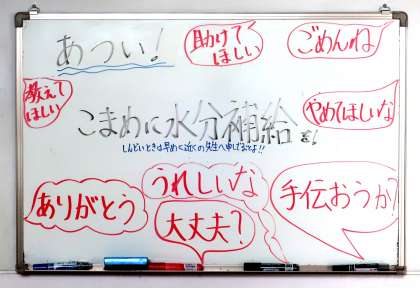 あつい！
助けて
ほしい
ごめんね
教えて
ほしい
やめてほしいな
こまめに水分補給を！
しんどいときは早めに近くの先生へ申し出るよ！！
ありがとう
うれしいな
大丈夫？
手伝おうか？